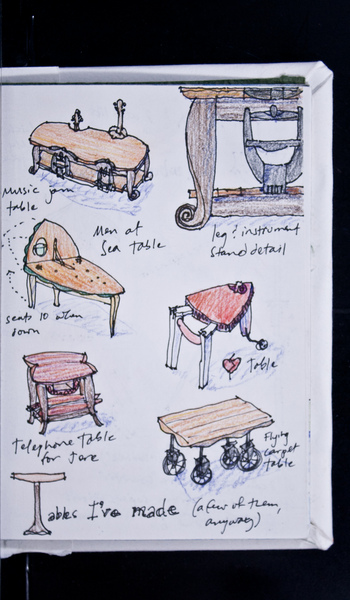 Music jam
table
leg & instrument
stand detail
Men at
Sea table
seats 10 when
down
table
telephone table
for Jane
Flying
carpet
table
Tables I've made (a few of them,
anyway)